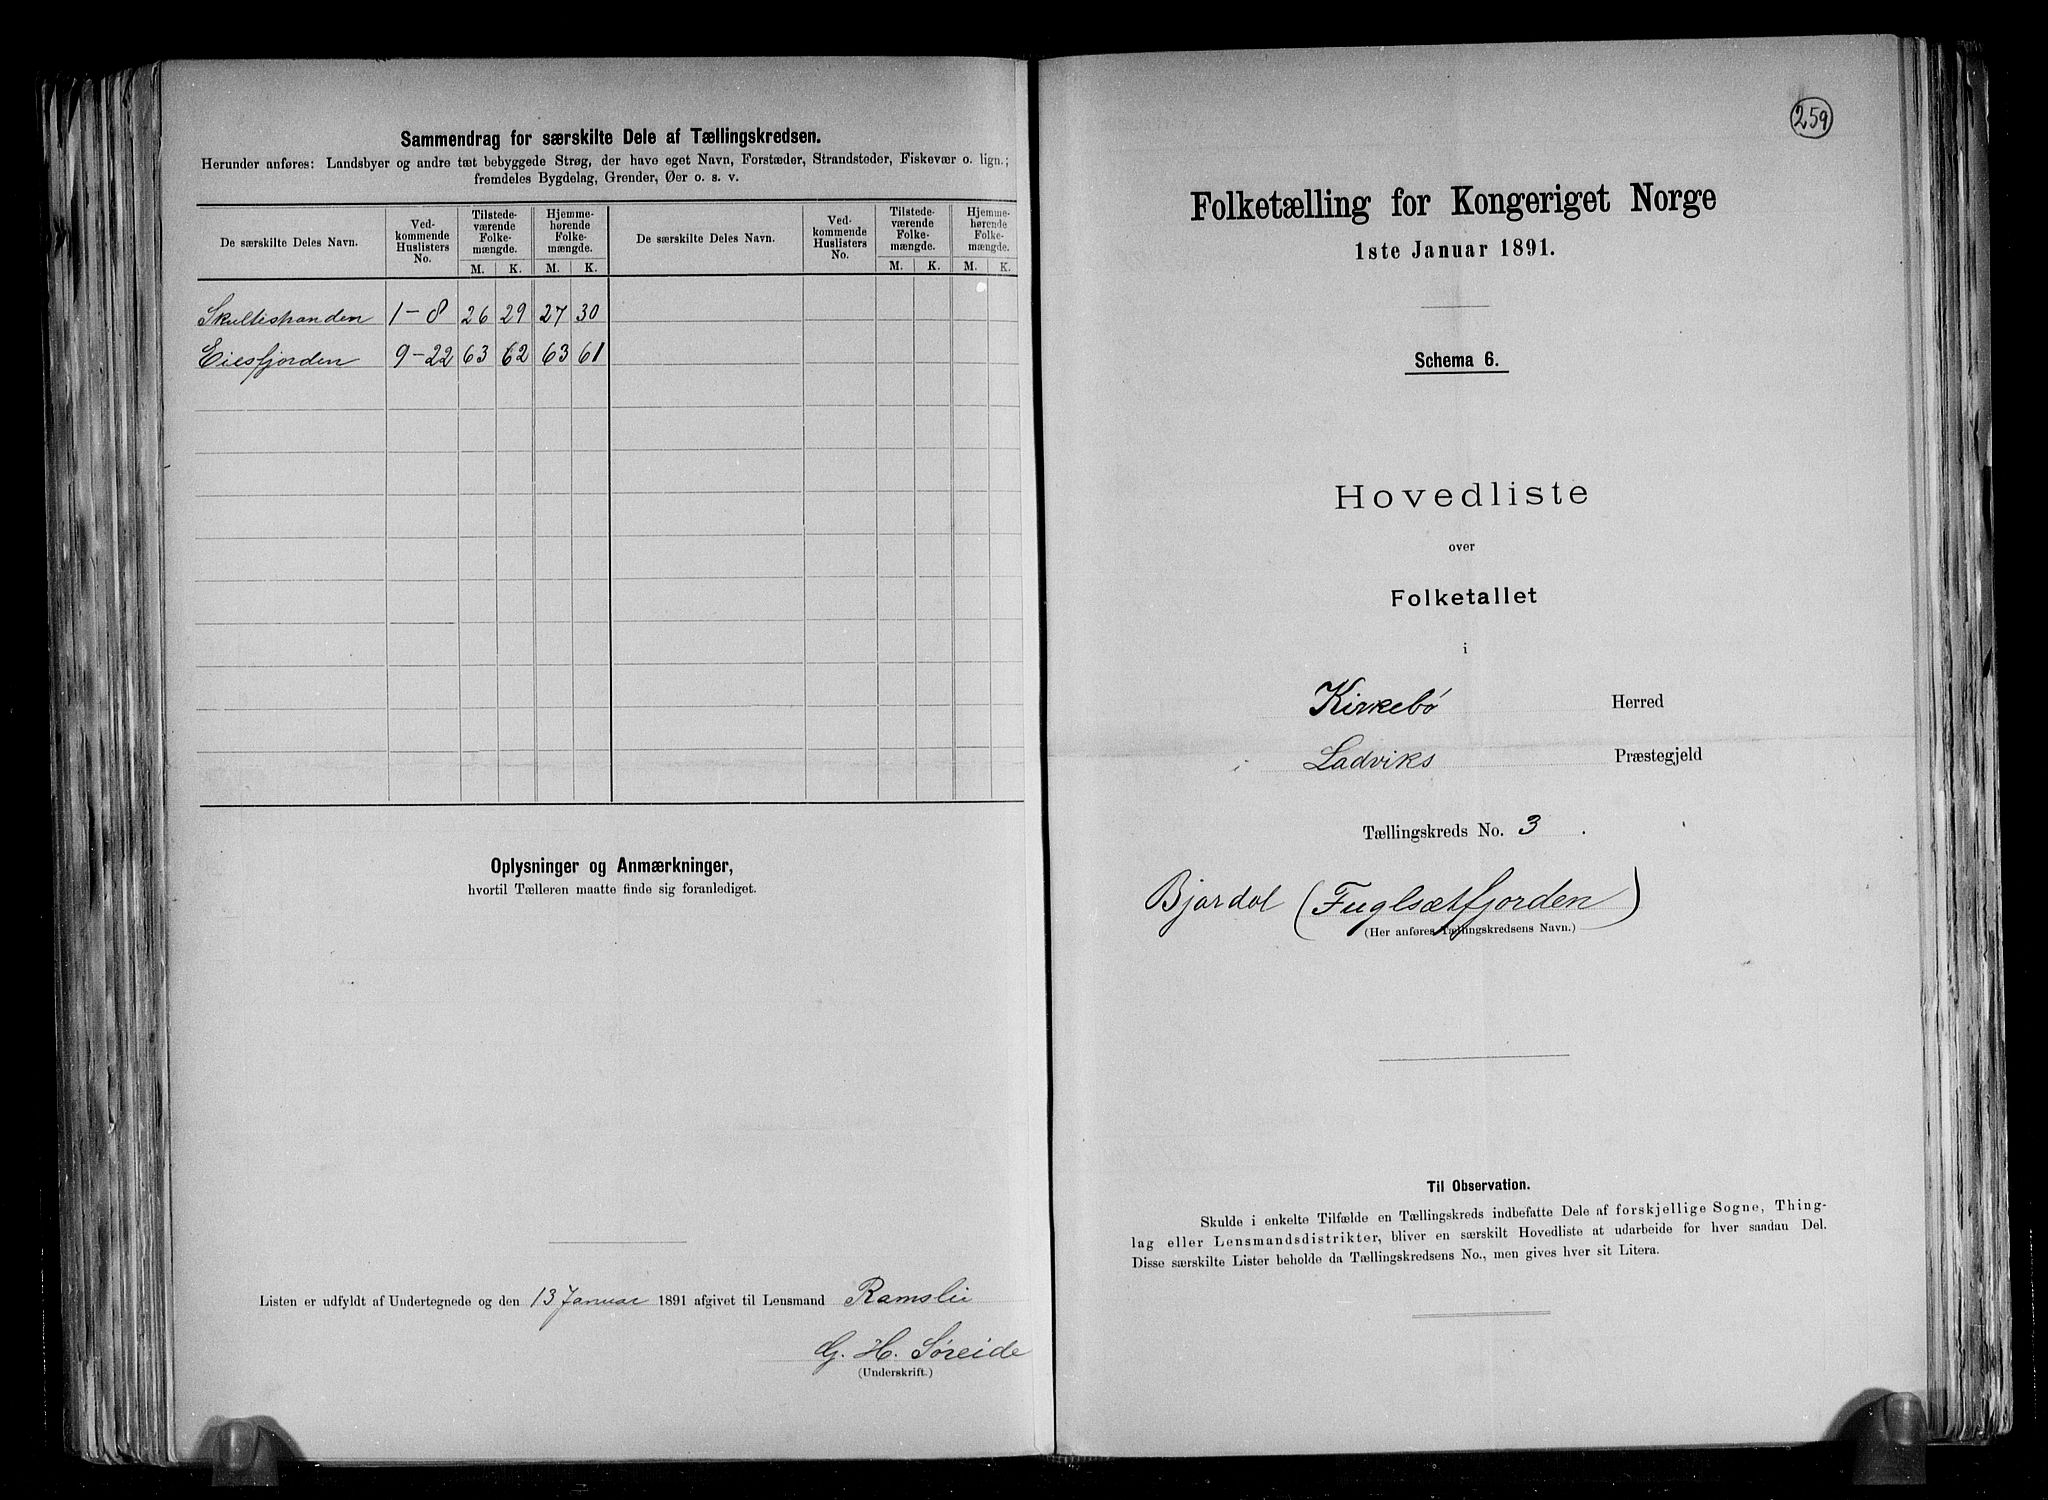 Sammendrag for særskilte Dele af Tællingskredsen.
Herunder anføres: Landsbyer og andre tæt bebyggede Strøg, der have eget Navn, Forstæder, Strandsteder, Fiskevær o. lign.;
fremdeles Bygdelag, Grender, Øer o. s. v.
De særskilte Deles Navn. Ved-kommende Huslisters No. Tilstede-værende Folke-mængde. Hjemme-hørende Folke-mængde. De særskilte Deles Navn. Ved-kommende Huslisters No. Tilstede-værende Folke-mængde. Hjemme-hørende Folke-mængde.
M. K. M. K. M. K. M. K.
1-8 26 29 27 30
9-22 63 62 63 61
Oplysninger og Anmærkninger,
hvortil Tælleren maatte finde sig foranlediget.
Listen er udfyldt af Undertegnede og den 13 Januar 1891 afgivet til Lensmand Ramslii
G. H. Søreide
(Underskrift.)
259
Folketælling for Kongeriget Norge
1ste Januar 1891.
Schema 6.
Hovedliste
over
Folketallet
i
Kirkebø Herred
Ladviks Præstegjeld
Tællingskreds No. 3.
Bjordal (Fuglsætfjorden)
(Her anføres Tællingskredsens Navn.)
Til Observation.
Skulde i enkelte Tilfælde en Tællingskreds indbefatte Dele af forskjellige Sogne, Thing-
lag eller Lensmandsdistrikter, bliver en særskilt Hovedliste at udarbeide for hver saadan Del.
Disse særskilte Lister beholde da Tællingskredsens No., men gives hver sit Litera.